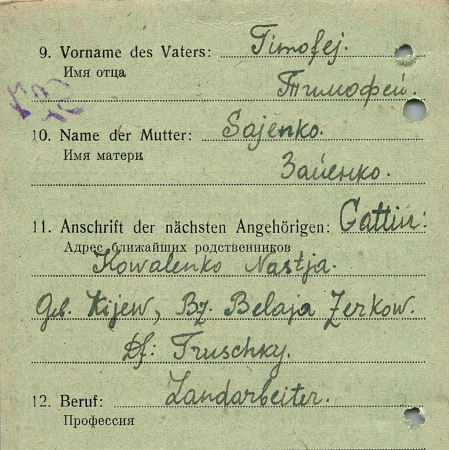 9. Vorname des Vaters: Timofej.
Имя отца
Тимофей.
10. Name der Mutter: Sajenko.
Имя матери
Зайенко.
11. Anschrift der nächsten Angehörigen: Gattin:
Адрес ближайших родственников
Kowalenko Nastja.
Geb. Kijew, Bz. Belaja Zerkow.
Df: Truschky.
12. Beruf: Landarbeiter.
Профессия